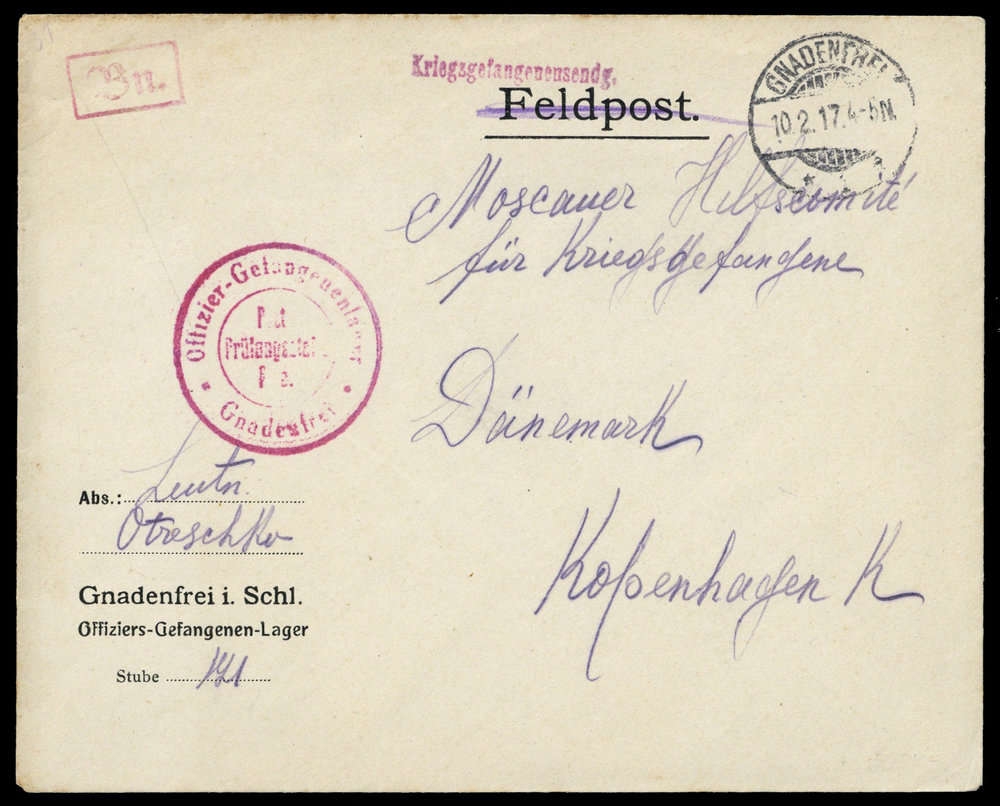 Bn.
Kriegsgefangenensendg.
Feldpost.
10.2.17.4-5N.
Moscauer Hilfscomité
für Kriegsgefangene
Dänemark
Kopenhagen K
Offizier-Gefangenenlager
Gnadenfrei
Abs.: Leutn.
Otreschko
Gnadenfrei i. Schl.
Offiziers-Gefangenen-Lager
Stube 121